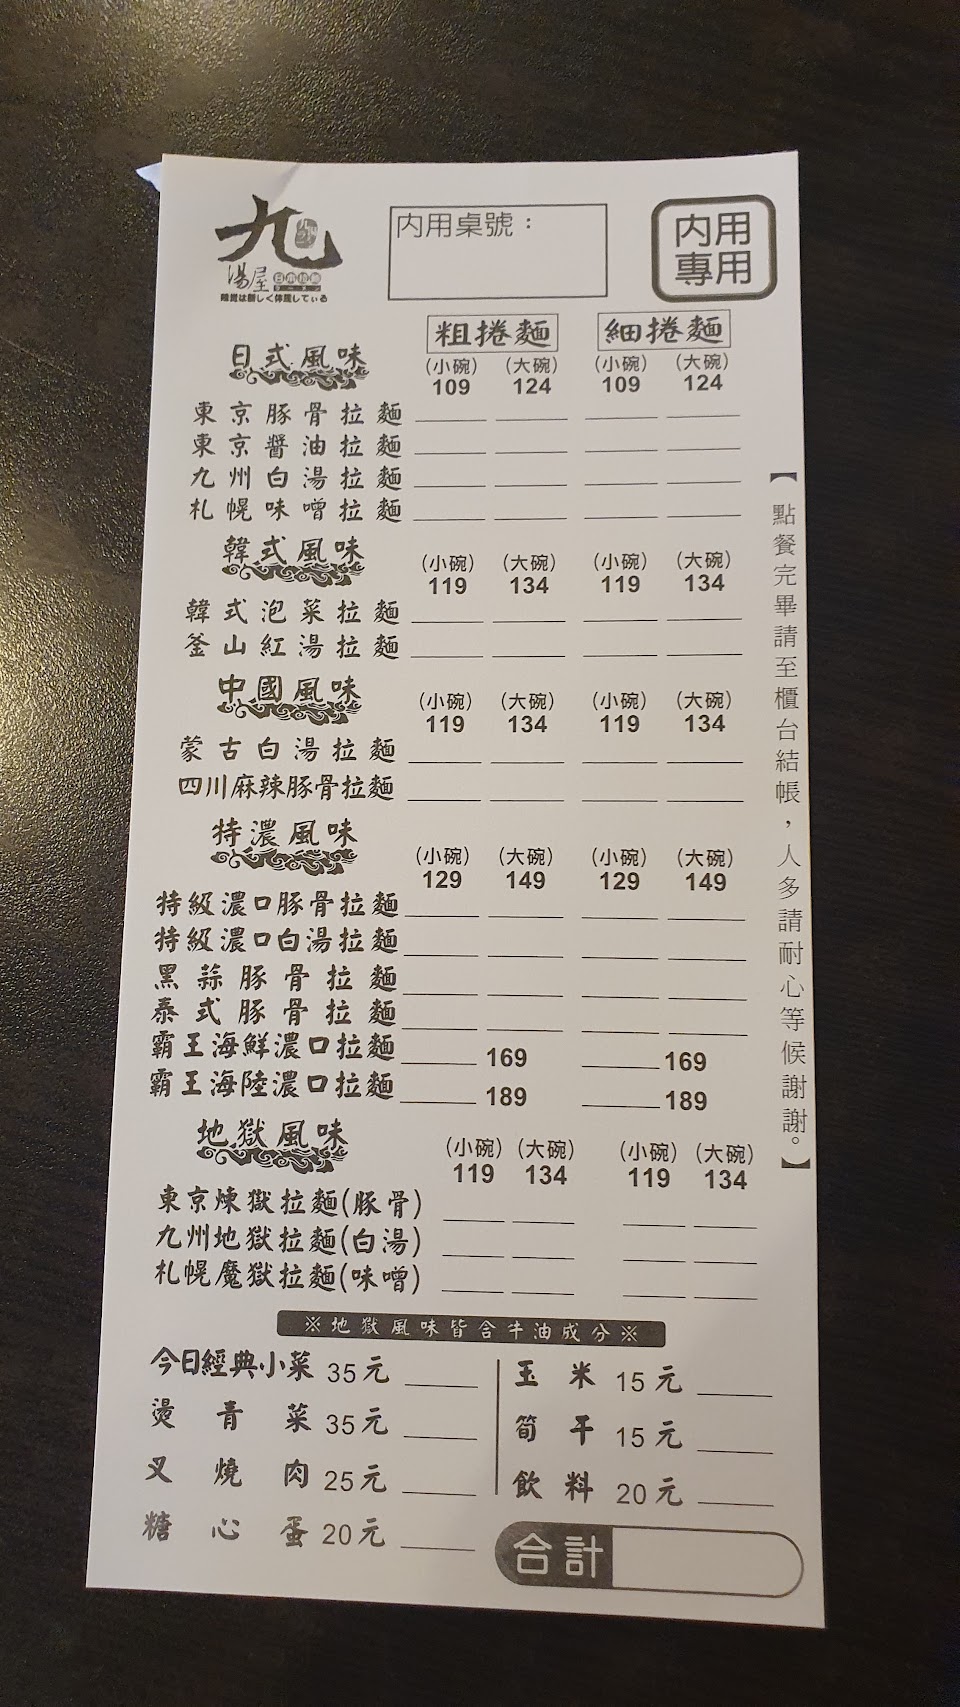 九
湯屋 日本拉麵
內用桌號：
內用
專用
粗捲麵 細捲麵
日式風味 (小碗) (大碗) (小碗) (大碗)
109 124 109 124
東京豚骨拉麵
東京醬油拉麵
九州白湯拉麵
札幌味噌拉麵
韓式風味 (小碗) (大碗) (小碗) (大碗)
119 134 119 134
韓式泡菜拉麵
釜山紅湯拉麵
中國風味 (小碗) (大碗) (小碗) (大碗)
119 134 119 134
蒙古白湯拉麵
四川麻辣豚骨拉麵
特濃風味 (小碗) (大碗) (小碗) (大碗)
129 149 129 149
特級濃口豚骨拉麵
特級濃口白湯拉麵
黑蒜豚骨拉麵
泰式豚骨拉麵
霸王海鮮濃口拉麵 169 169
霸王海陸濃口拉麵 189 189
地獄風味 (小碗) (大碗) (小碗) (大碗)
119 134 119 134
東京煉獄拉麵(豚骨)
九州地獄拉麵(白湯)
札幌魔獄拉麵(味噌)
※地獄風味皆含牛油成分※
今日經典小菜 35元
燙青菜 35元
叉燒肉 25元
糖心蛋 20元
玉米 15元
筍干 15元
飲料 20元
合計
【點餐完畢請至櫃台結帳，人多請耐心等候謝謝。】